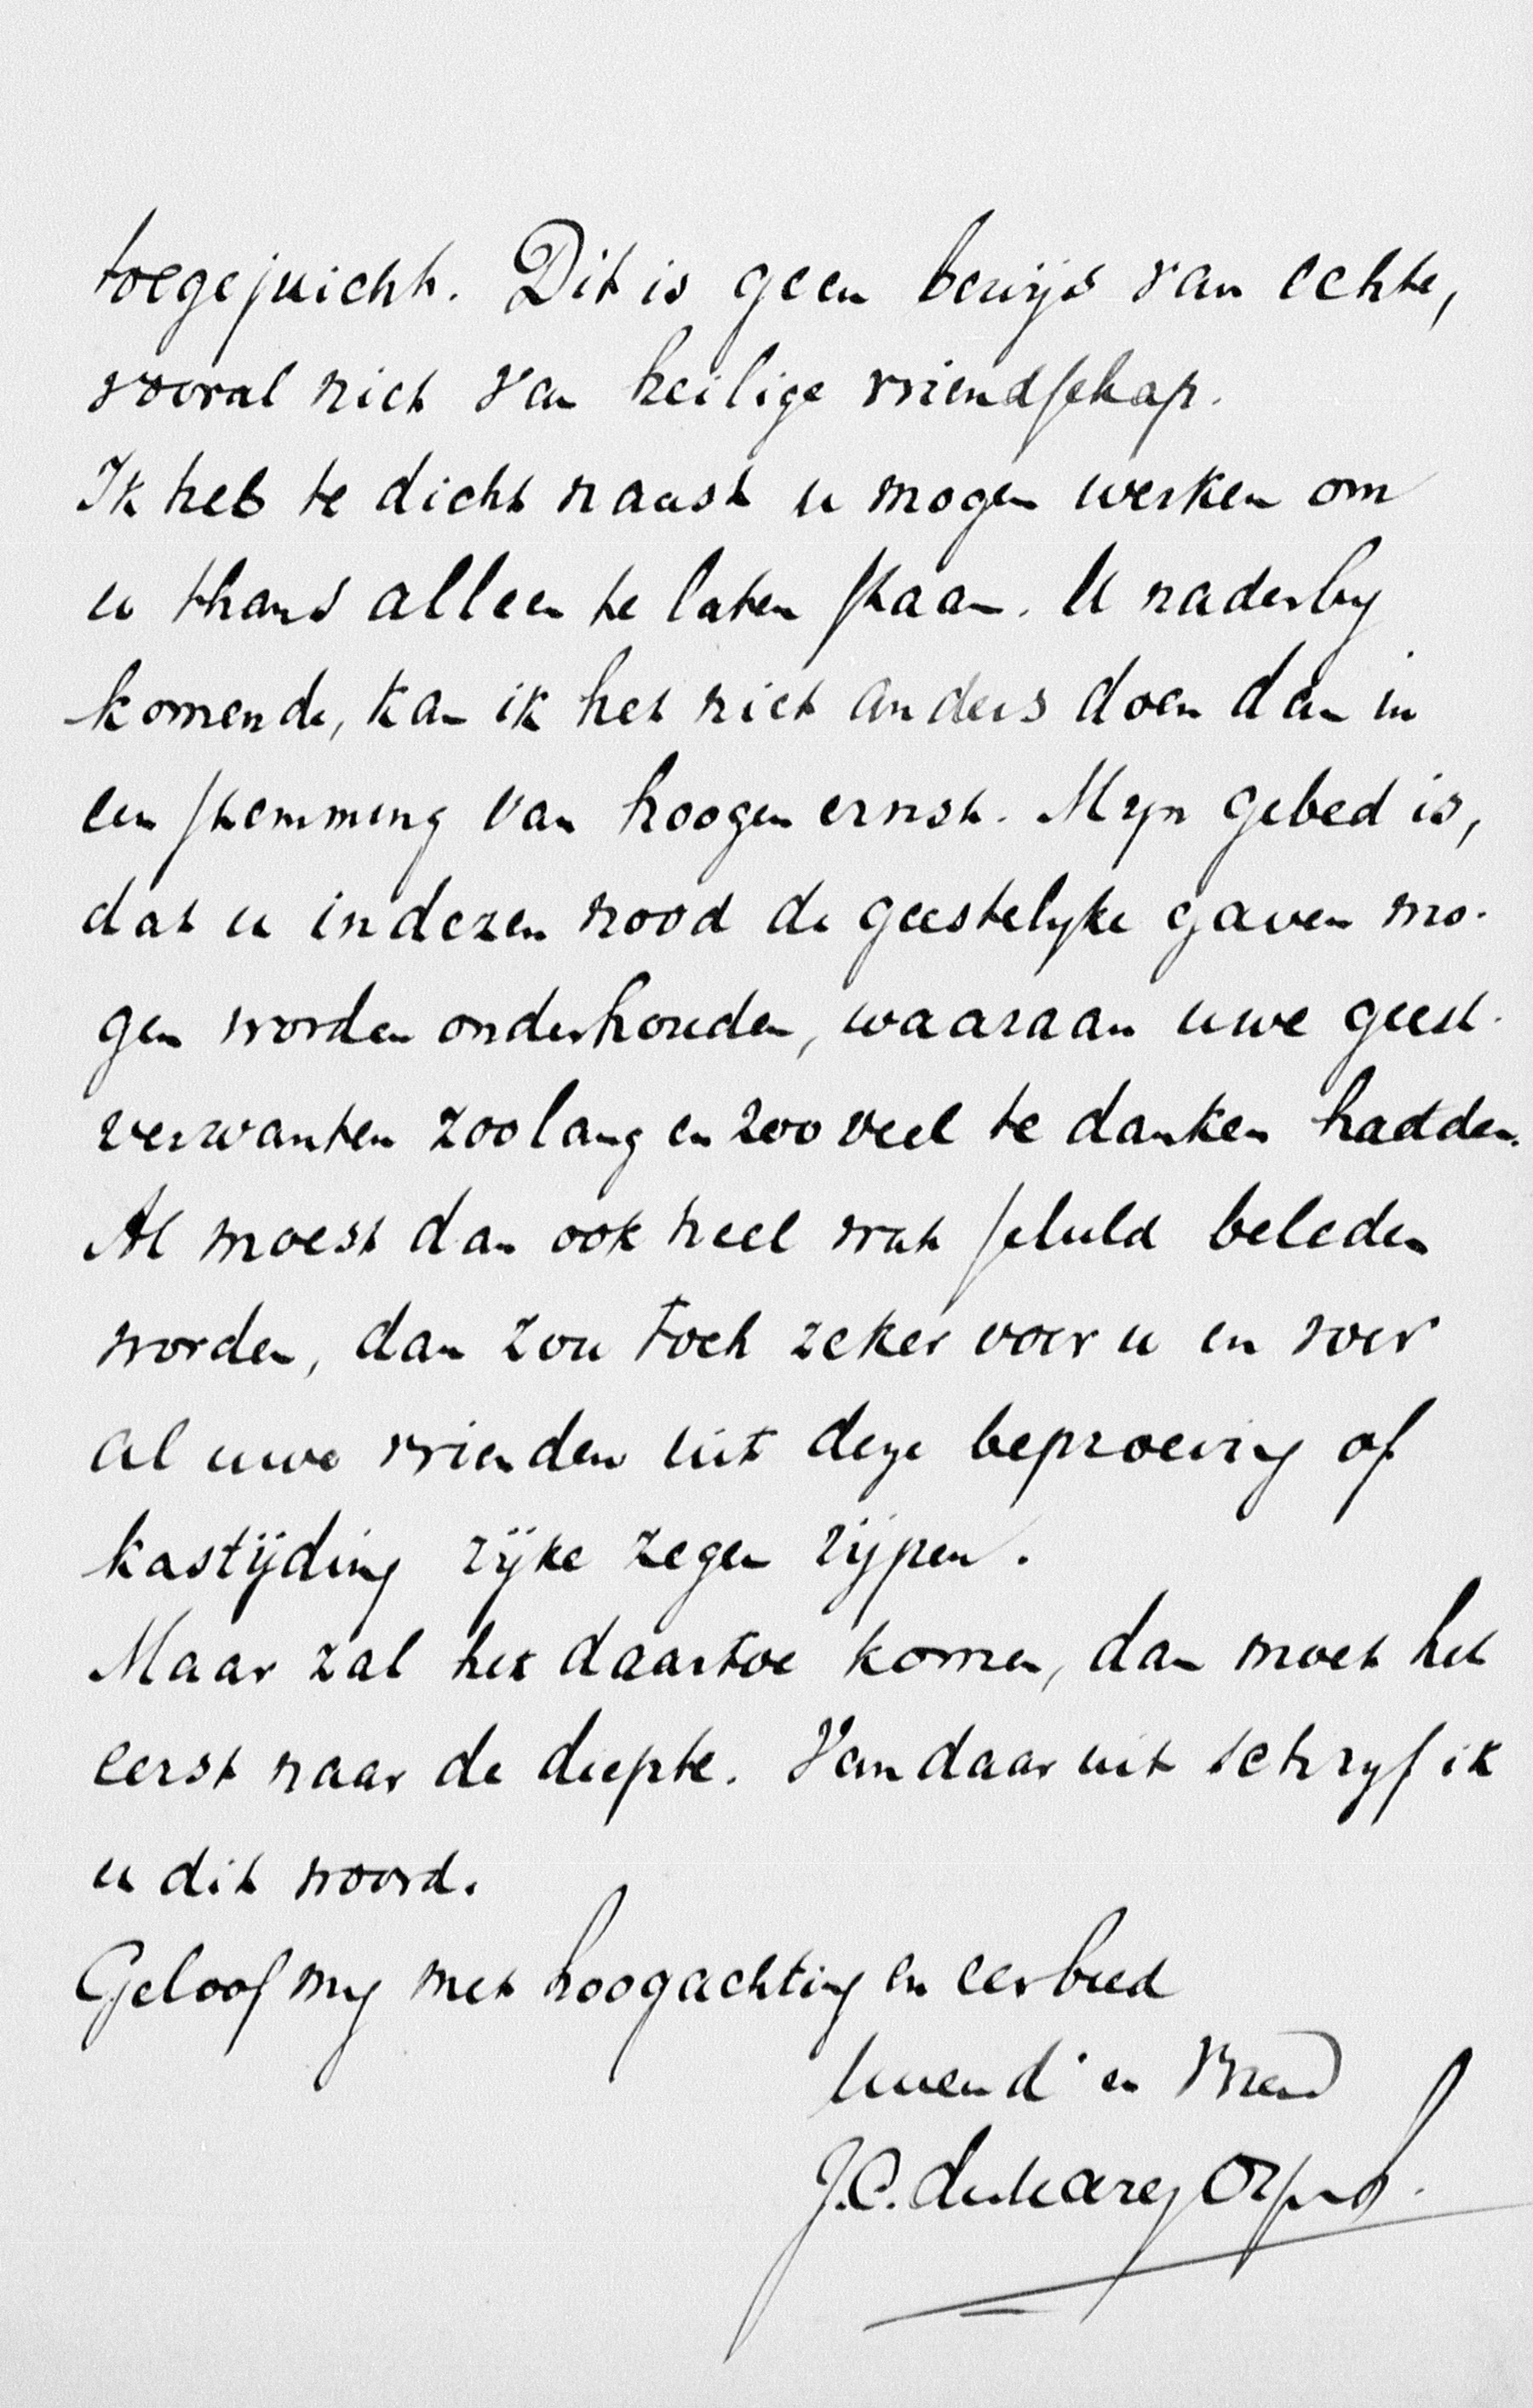 toegejuicht. Dit is geen bewijs van echte,
vooral niet van heilige vriendschap.
Ik heb te dicht naast u mogen werken om
u thans alleen te laten staan. U naderby
komende, kan ik het niet anders doen dan in
een stemming van hoogen ernst. Myn gebed is,
dat u in dezen nood de geestelyke gaven mo-
gen worden onderhouden, waaraan uwe geest-
verwanten zoolang en zooveel te danken hadden.
Al moest dan ook heel wat schuld beleden
worden, dan zou toch zeker voor u en voor
al uwe vrienden uit deze beproeving of
kastijding rijke zegen rijpen.
Maar zal het daartoe komen, dan moet het
eerst naar de diepte. Van daar uit schryf ik
u dit woord.
Geloof my met hoogachting en eerbied
Uwen d. en vriend
J.C.